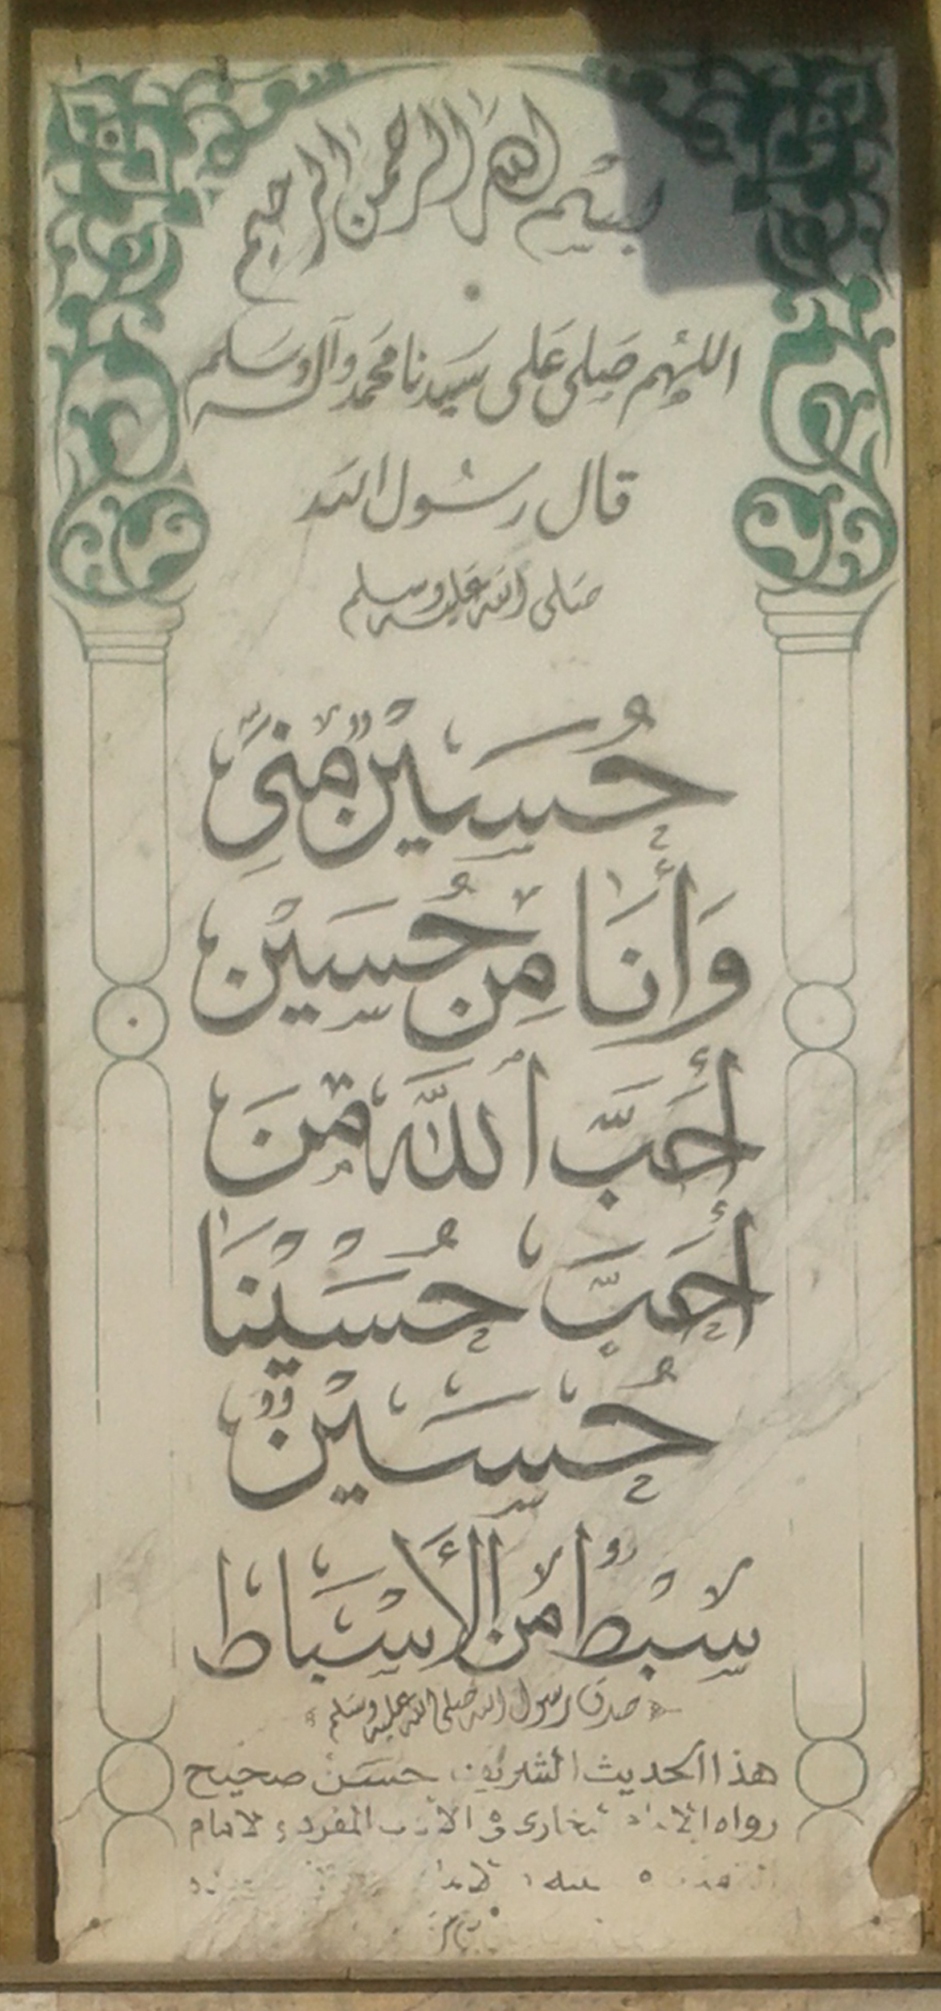 بسم الله الرحمن الرحيم
اللهم صلى على سيدنا محمد وآله وسلم
قال رسول الله
صلى الله عليه وسلم
حُسَيْنٌ مِنِّى
وَأَنَا مِن حُسَيْن
أَحَبَّ اللَّهَ مَنَ
أَحَبَّ حُسَيْنَا
حُسَيْنٌ
سِبْطٌ مِنَ الأَسْبَاط
صدق رسول الله صلى الله عليه وسلم
هذا الحديث الشريف حسن صحيح
رواه البخارى فى الأدب المفرد والامام